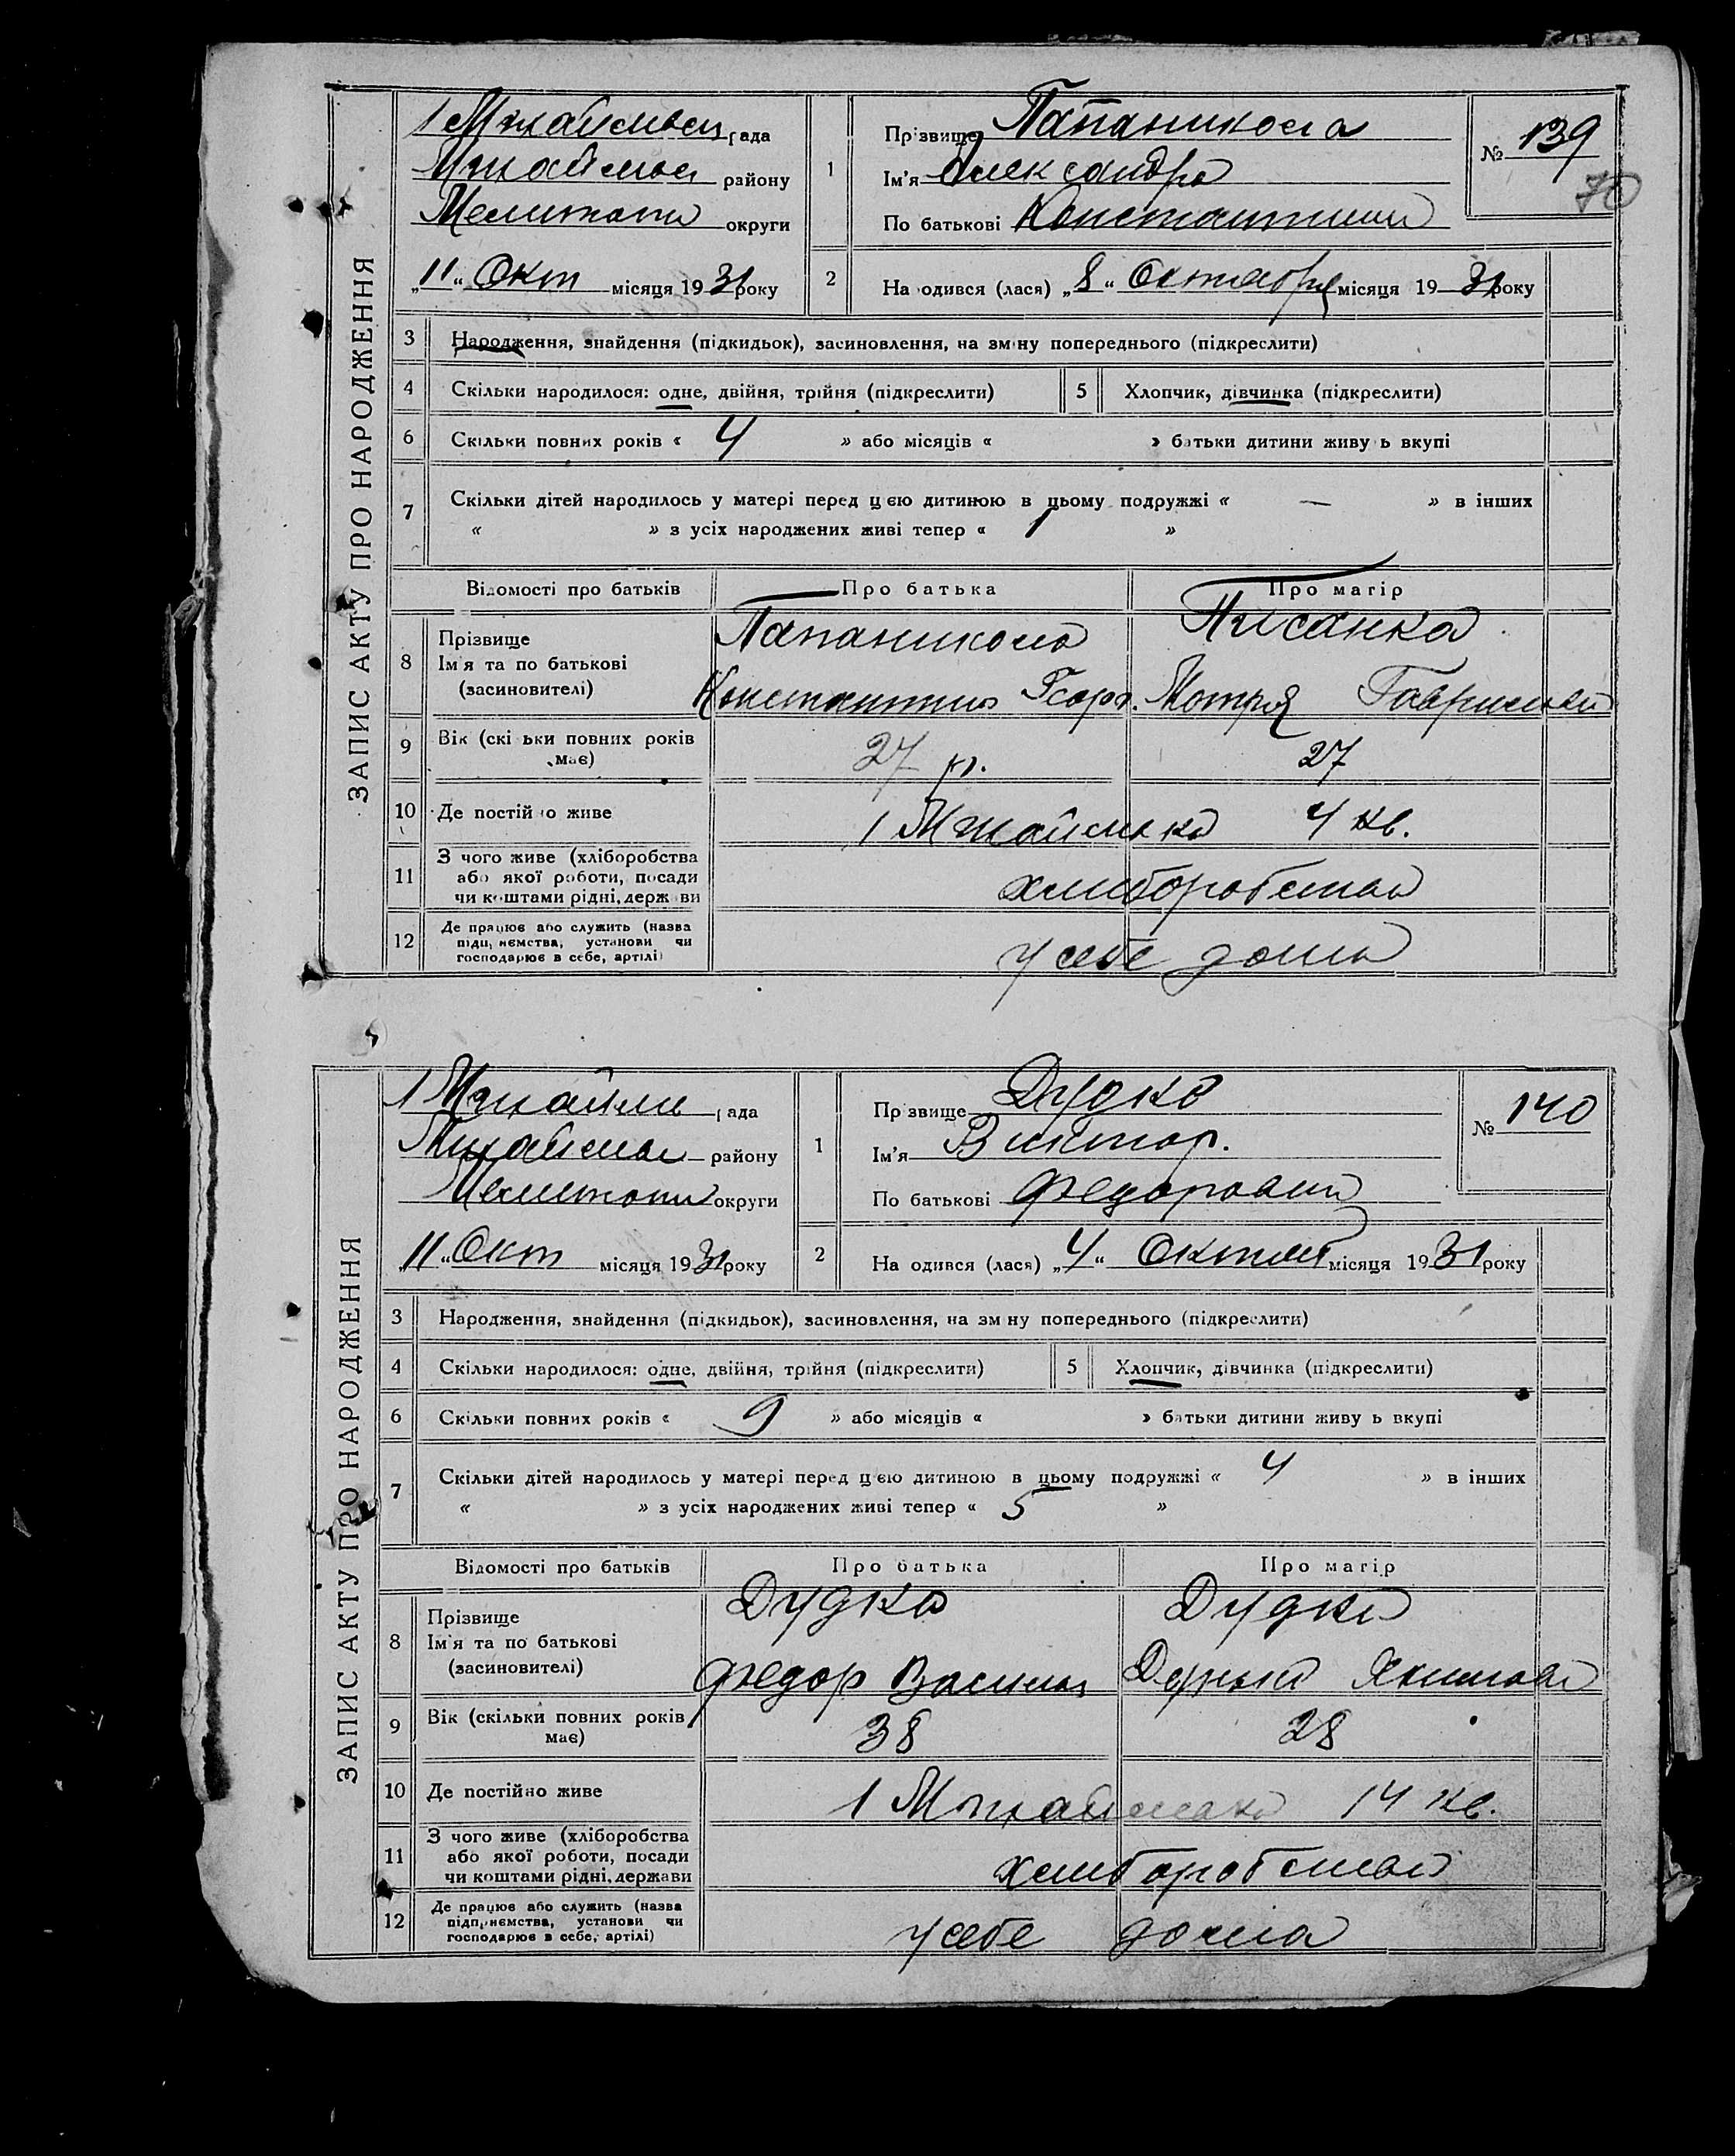 ЗАПИС АКТУ ПРО НАРОДЖЕННЯ
1 Михайлівсь рада
Михайлівсь району
Мелитопи округи
„11“ Окт місяця 1931 року
1 Прізвище Папаникола
Ім'я Александра
По батькові Константини
№ 139
70
2 На одився (лася) „8“ Октября місяця 1931 року
3 Народження, знайдення (підкидьок), засиновлення, на зміну попереднього (підкреслити)
4 Скільки народилося: одне, двійня, трійня (підкреслити) 5 Хлопчик, дівчинка (підкреслити)
6 Скільки повних років « 4 » або місяців « » батьки дитини живу ь вкупі
7 Скільки дітей народилось у матері перед цєю дитиною в цьому подружжі « — » в інших
« » з усіх народжених живі тепер « 1 »
Відомості про батьків Про батька Про матір
8 Прізвище Папаникола Писанка
Ім'я та по батькові
(засиновителі) Константин Георг. Мотря Гаврилови
9 Вік (скі ьки повних років 27 р. 27
має)
10 Де постій о живе 1 Михайлівка 4 кв.
11 З чого живе (хліборобства
або якої роботи, посади хлиборобства
чи коштами рідні, держ ви
12 Де працює або служить (назва
підп иємства, установи чи у себе дома
господарює в себе, артілі)
ЗАПИС АКТУ ПРО НАРОДЖЕННЯ
1 Михайлів рада
Михайлів району
Мелитопи округи
„11“ Окт місяця 1931 року
1 Прізвище Дудко
Ім'я Виктор.
По батькові Федорович
№ 140
2 На одився (лася) „4“ Октяб місяця 1931 року
3 Народження, знайдення (підкидьок), засиновлення, на зм ну попереднього (підкреслити)
4 Скільки народилося: одне, двійня, трійня (підкреслити) 5 Хлопчик, дівчинка (підкреслити)
6 Скільки повних років « 9 » або місяців « » батьки дитини живу ь вкупі
7 Скільки дітей народилось у матері перед цєю дитиною в цьому подружжі « 4 » в інших
« » з усіх народжених живі тепер « 5 »
Відомості про батьків Про батька Про матір
8 Прізвище Дудко Дудко
Ім'я та по батькові
(засиновителі) Федор Василь Якимови
9 Вік (скільки повних років 38 28
має)
10 Де постійно живе 1 Михайлівка 14 кв.
11 З чого живе (хліборобства
або якої роботи, посади хлиборобства
чи коштами рідні, держави
12 Де працює або служить (назва
підприємства, установи чи у себе дома
господарює в себе, артілі)